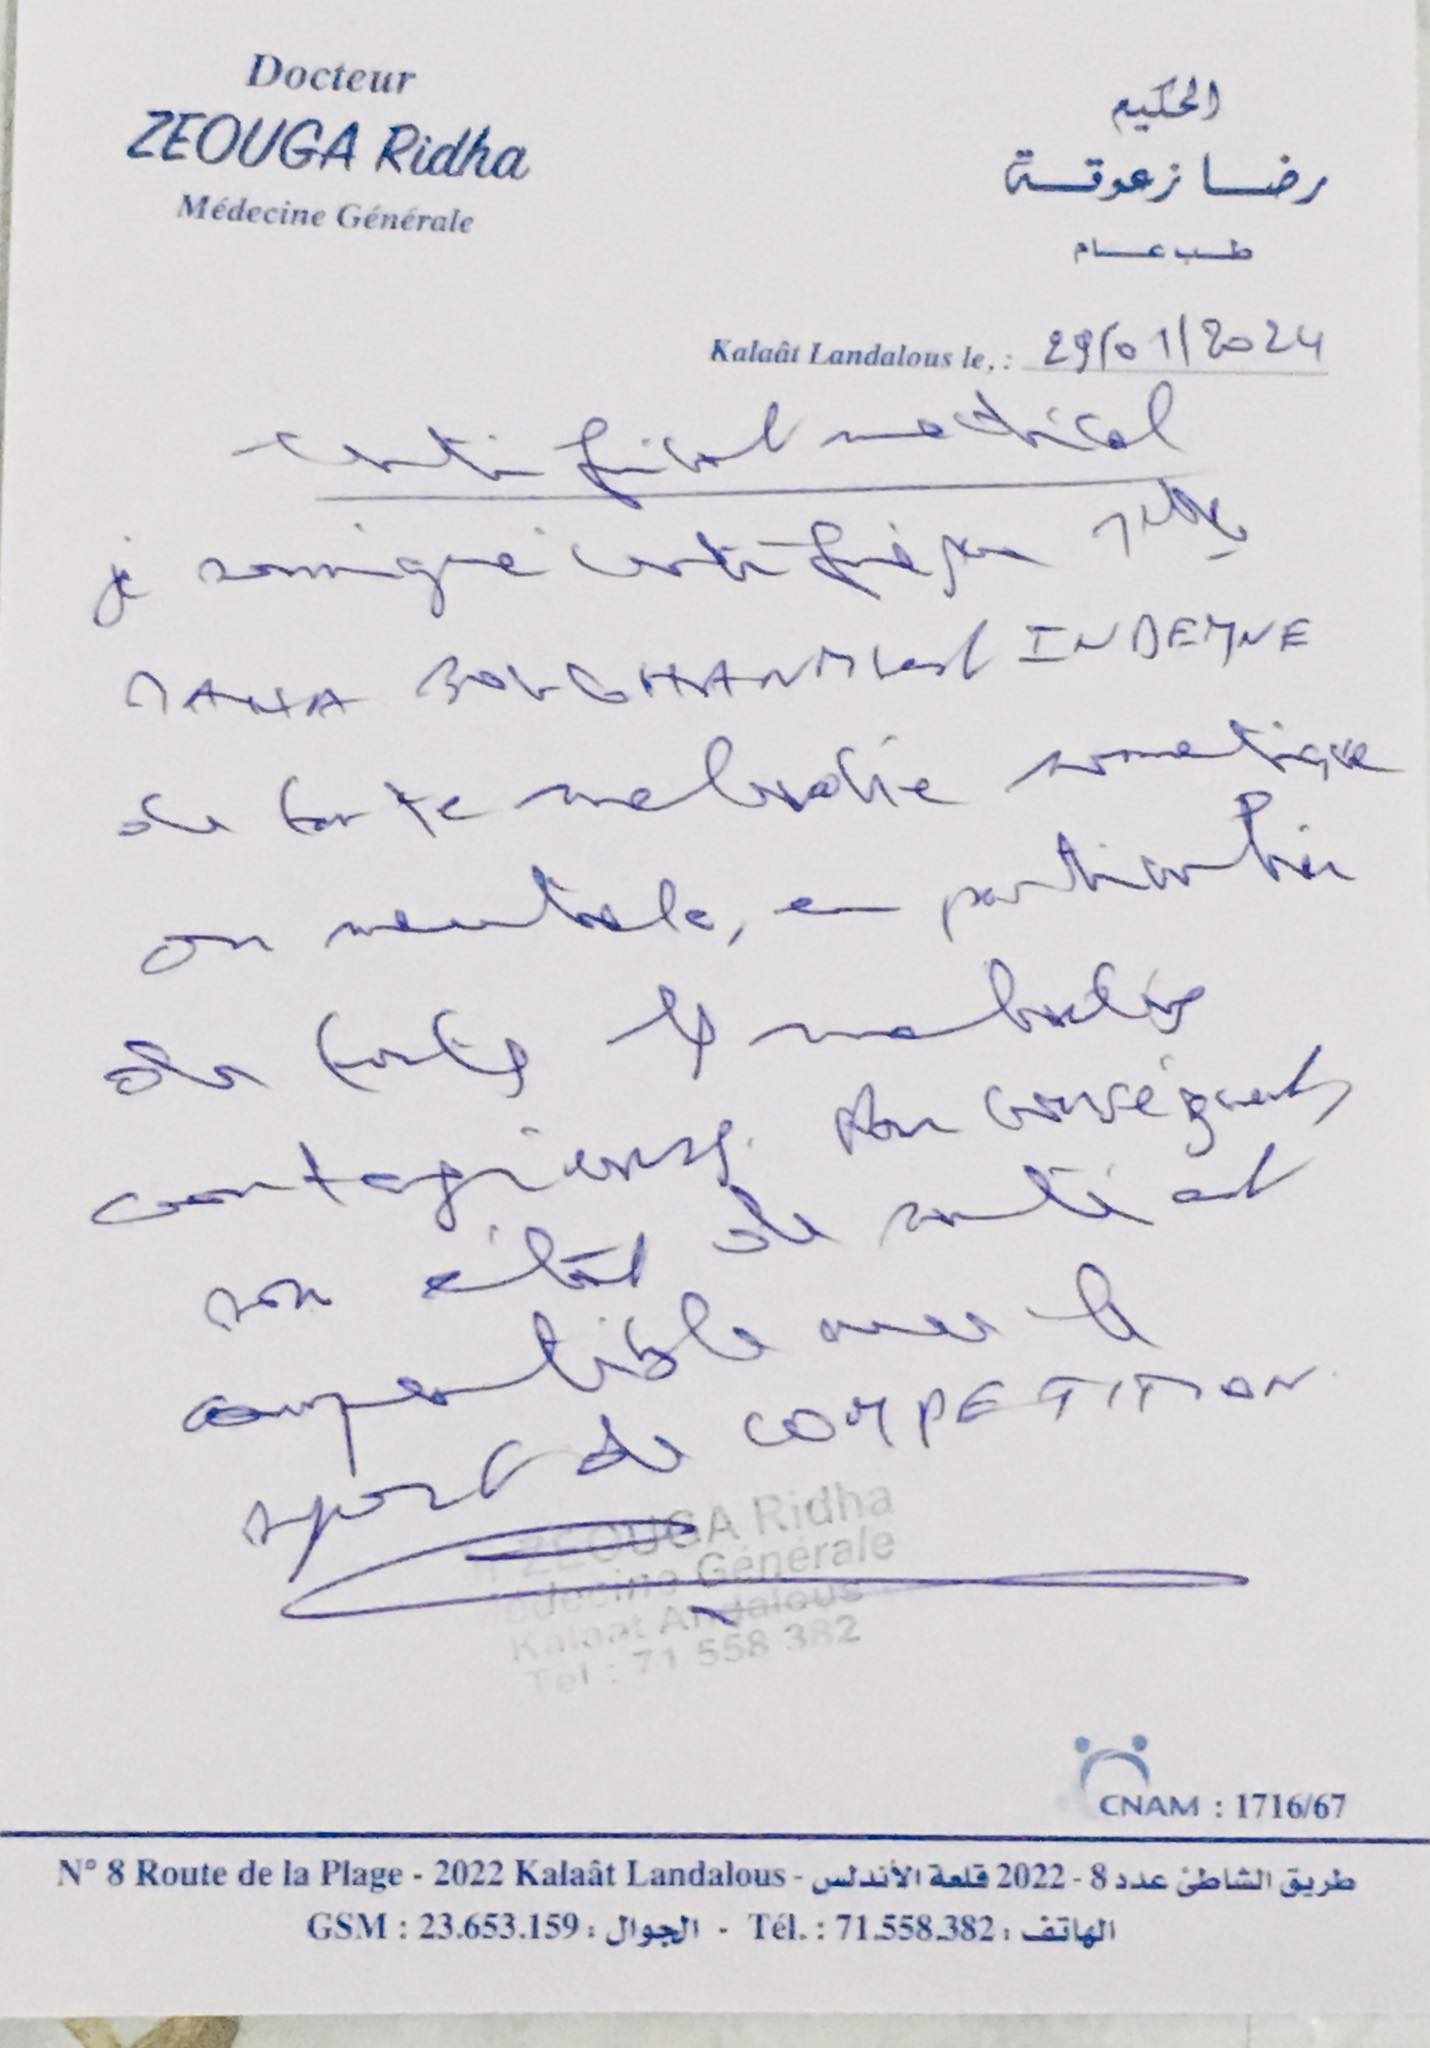 Docteur
ZEOUGA Ridha
Médecine Générale
الحكيم
رضا زعوقة
طب عام
Kalaât Landalous le, : 29/01/2024
certificat medical
je soussigné certifie que Mlle
MAHA est INDEMNE
de toute maladie somatique
ou mentale, en particulier
de toutes les maladies
contagieuses. Par conséquent
son état de santé est
compatible avec le
sport de COMPETITION
ZEOUGA Ridha
Médecine Générale
Kalaat Andalous
Tel : 71 558 382
CNAM : 1716/67
N° 8 Route de la Plage - 2022 Kalaât Landalous - طريق الشاطئ عدد 8 - 2022 قلعة الأندلس
GSM : 23.653.159 : الجوال - Tél. : 71.558.382 : الهاتف